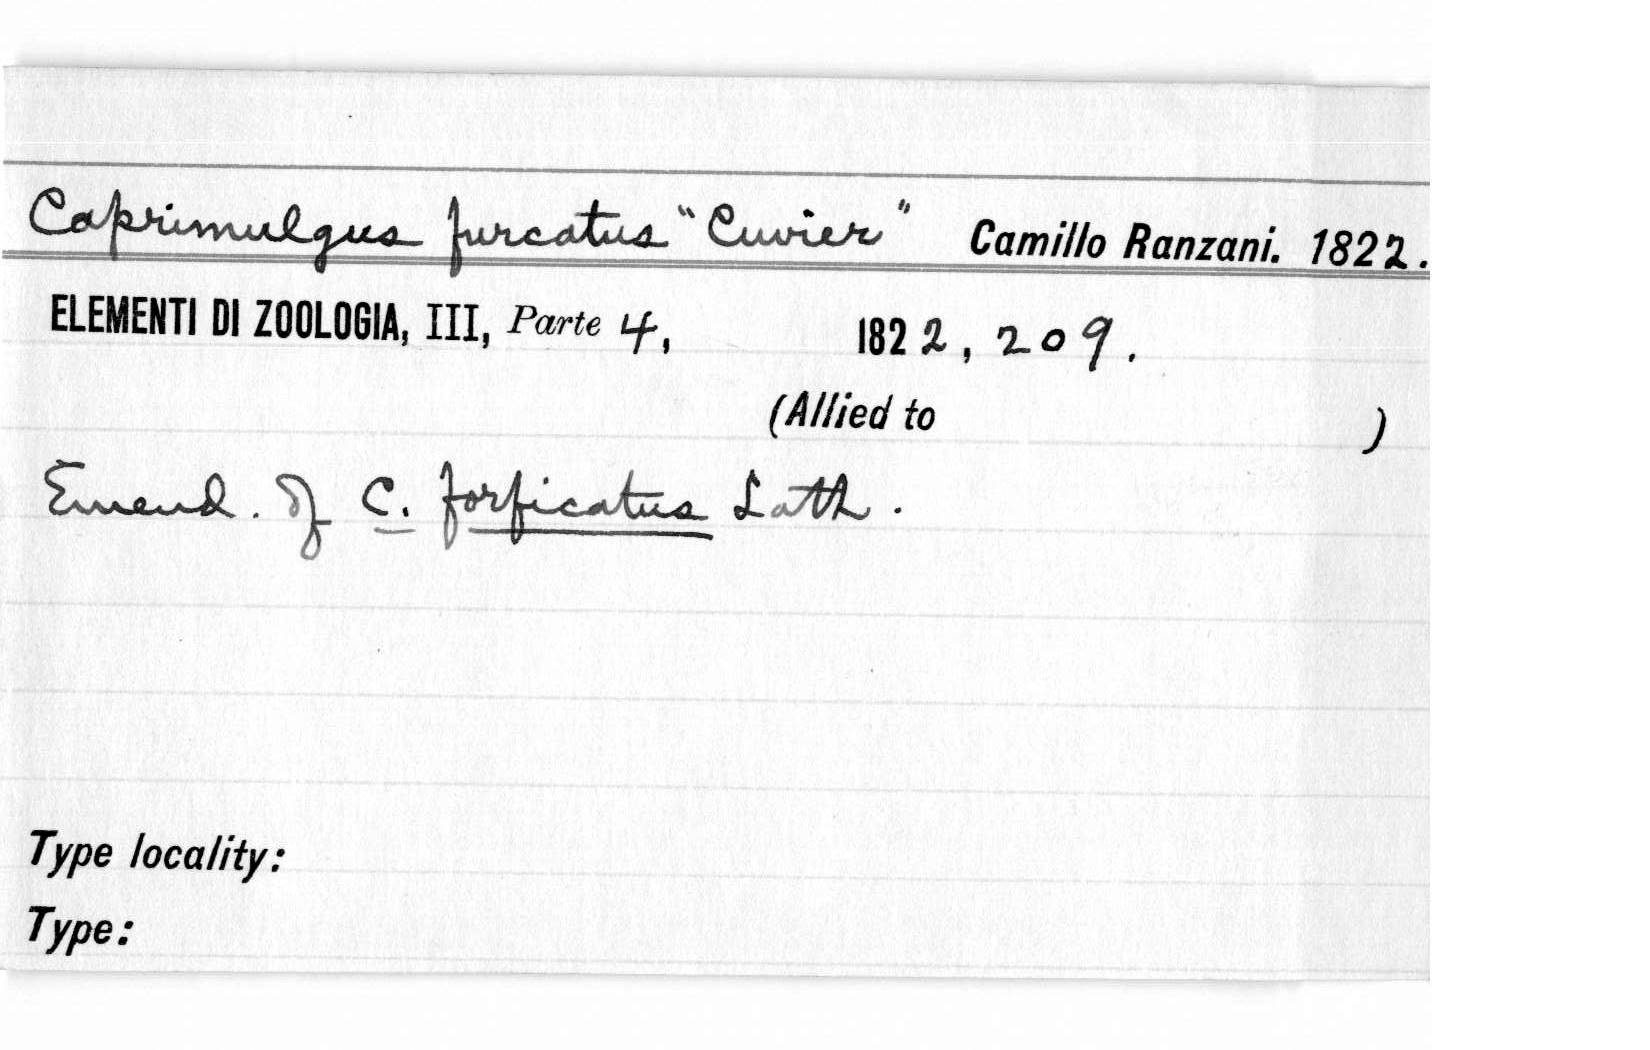 Caprimulgus furcatus "Cuvier" Camillo Ranzani. 1822.
ELEMENTI DI ZOOLOGIA, III, Parte 4, 1822, 209.
(Allied to )
Emend. of C. forficatus Lath.
Type locality:
Type: